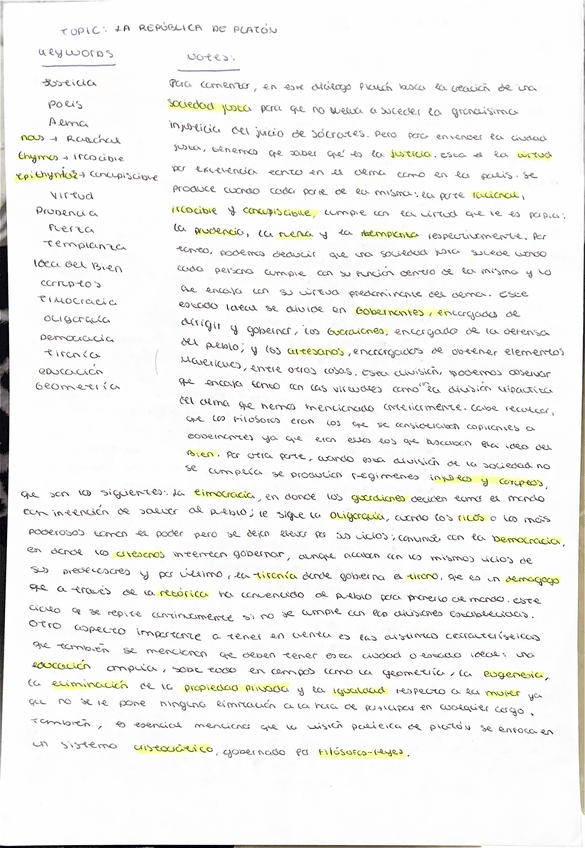 TOPIC: LA REPÚBLICA DE PLATÓN
KEYWORDS
NOTES:
Justicia
Polis
Alma
nous → Racional
thymos → irascible
epithymia → concupiscible
virtud
Prudencia
Fuerza
Templanza
Idea del Bien
corruptos
Timocracia
oligarquía
Democracia
tiranía
educación
Geometría
Para comenzar, en este diálogo Platón busca la creación de una
sociedad justa para que no vuelva a suceder la grandísima
injusticia del juicio de Sócrates. Pero para entender la ciudad
justa, tenemos que saber qué es la justicia. Esta es la virtud
por excelencia tanto en el alma como en la polis. Se
produce cuando cada parte de la misma: la parte racional,
irascible y concupiscible, cumple con la virtud que le es propia:
la prudencia, la fuerza y la templanza respectivamente. Por
tanto, podemos deducir que una sociedad justa sucede cuando
cada persona cumple con su función dentro de la misma y la
que encaja con su virtud predominante del alma. Este
estado ideal se divide en Gobernantes, encargados de
dirigir y gobernar, los Guardianes, encargados de la defensa
del pueblo; y los artesanos, encargados de obtener elementos
materiales, entre otras cosas. Esta división, podemos observar
que encaja tanto con las virtudes como la división tripartita
del alma que hemos mencionado anteriormente. Cabe recalcar,
que los filósofos eran los que se consideraban
gobernantes ya que eran ellos los que buscaban esa idea del
Bien. Por otra parte, cuando esta división de la sociedad no
se cumplía se producían regímenes injustos y corruptos,
que son los siguientes: la timocracia, en donde los guardianes deciden tomar el mando
con intención de salvar al pueblo; le sigue la oligarquía, cuando los ricos o los más
poderosos toman el poder pero se dejan llevar por sus vicios; continúa con la democracia,
en donde los artesanos intentan gobernar, aunque acaban con los mismos vicios de
sus predecesores y por último, la tiranía donde gobierna el tirano, que es un demagogo
que a través de la retórica ha convencido al pueblo para ponerlo al mando. Este
ciclo se repite continuamente si no se cumple con las divisiones establecidas.
Otro aspecto importante a tener en cuenta es las distintas características
que también se mencionan que deben tener esta ciudad o estado ideal: una
educación amplia, sobre todo en campos como la geometría, la eugenesia,
la eliminación de la propiedad privada y la igualdad respecto a la mujer ya
que no se le pone ninguna limitación a la hora de participar en cualquier cargo.
También, es esencial mencionar que la visión política de Platón se enfoca en
un sistema aristocrático, gobernado por filósofos-reyes.